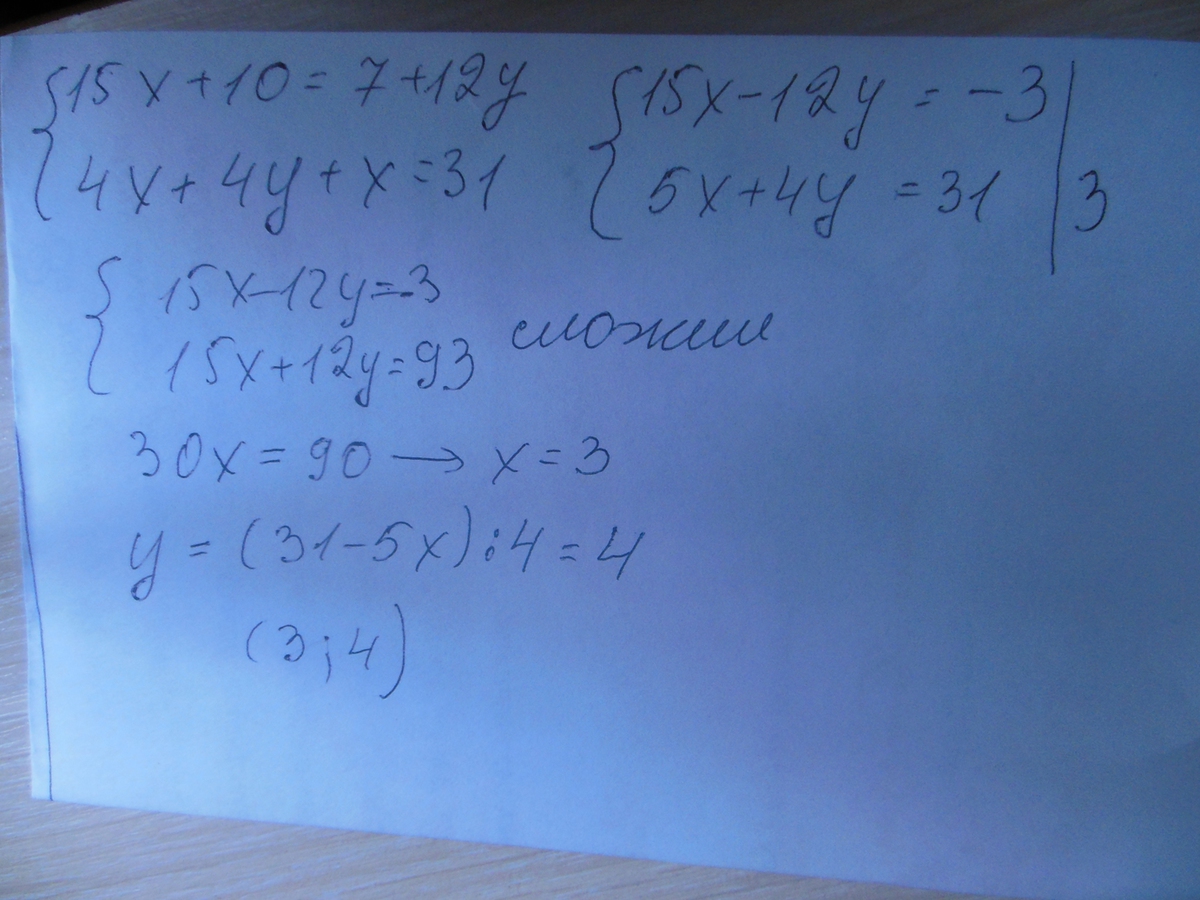 {15x+10=7+12y
{4x+4y+x=31
{15x-12y=-3|
{5x+4y=31|3
{15x-12y=-3
{15x+12y=93 сложим
30x=90→x=3
y=(31-5x):4=4
(3;4)